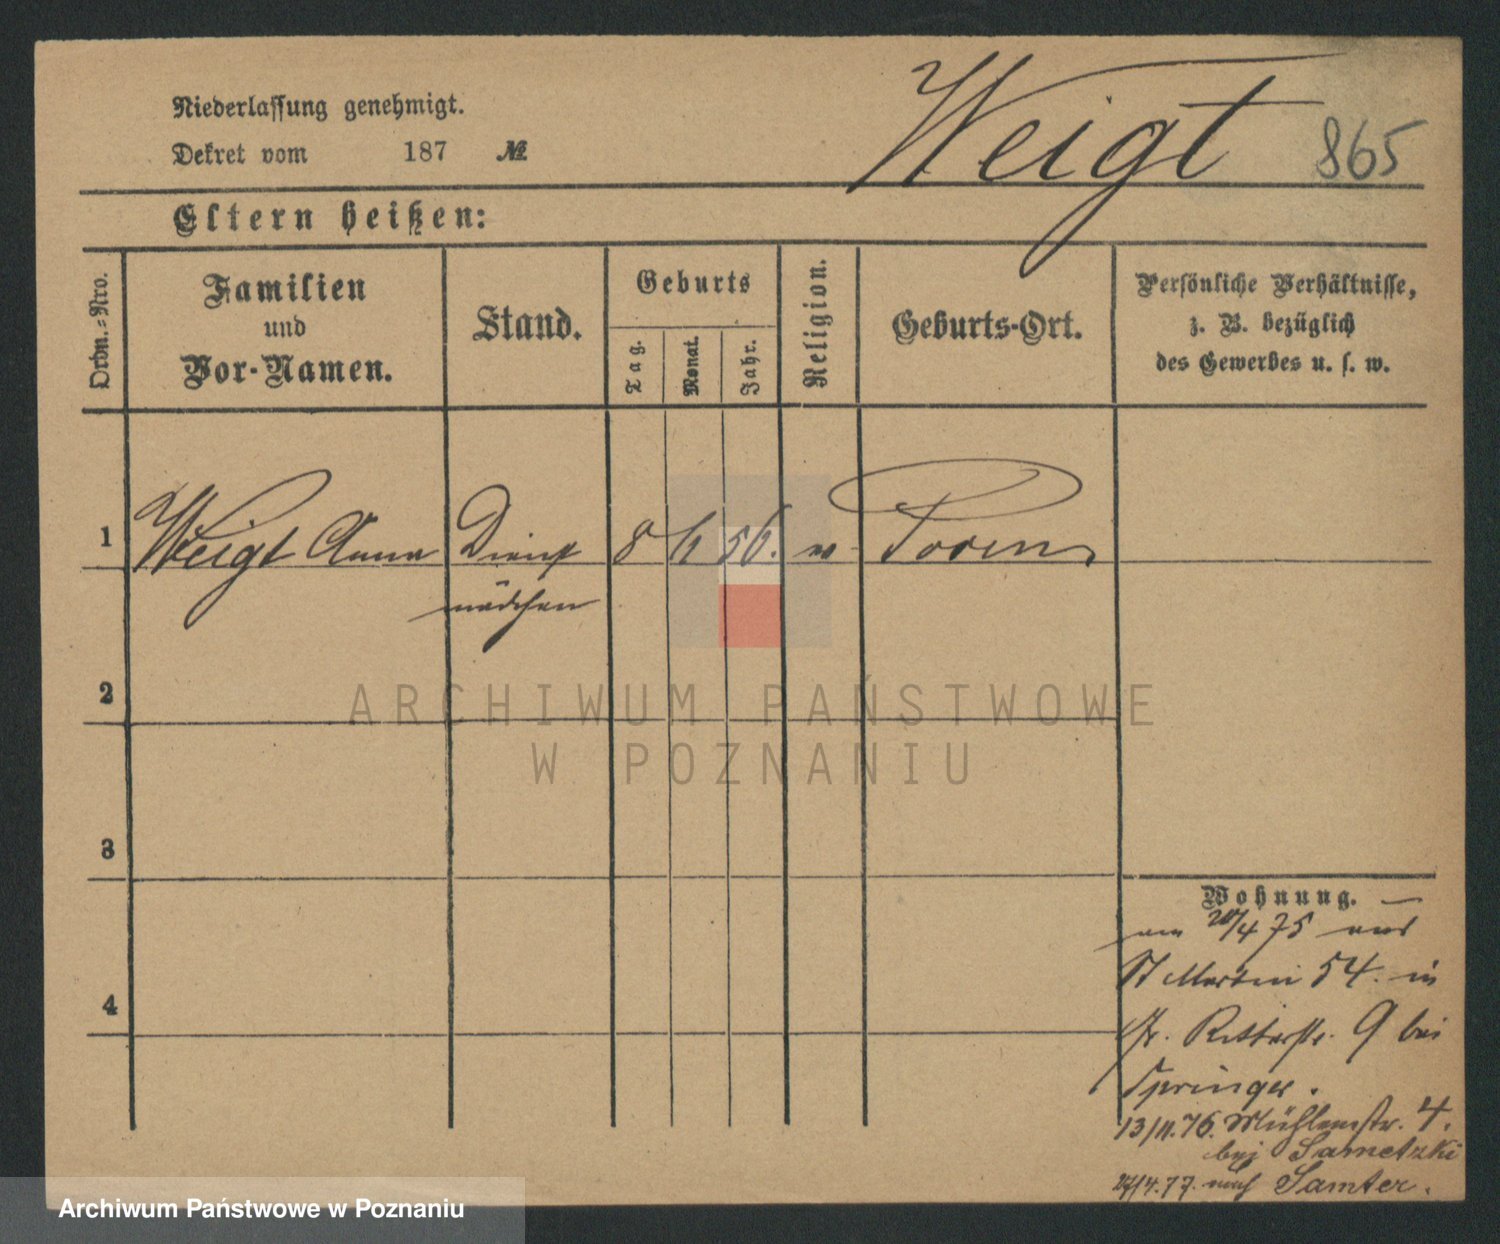 Weigt 865
Niederlassung genehmigt.
Dekret vom 187 №
Eltern heißen:
Ordn.-Nro.
Familien
und
Vor-Namen.
Stand.
Geburts
Tag.
Monat.
Jahr.
Religion.
Geburts-Ort.
Persönliche Verhältnisse,
z. B. bezüglich
des Gewerbes u. s. w.
1 Weigt Anna Dienst 8 56. Posen
mädchen
2
3
4
Wohnung.
4 75 aus
St Martin 54. in
Ritterstr. 9 bei
Springer.
13/11.76. Mühlenstr. 4.
bei Sametzki
27/4.77. nach Samter.
ARCHIWUM PAŃSTWOWE
W POZNANIU
Archiwum Państwowe w Poznaniu